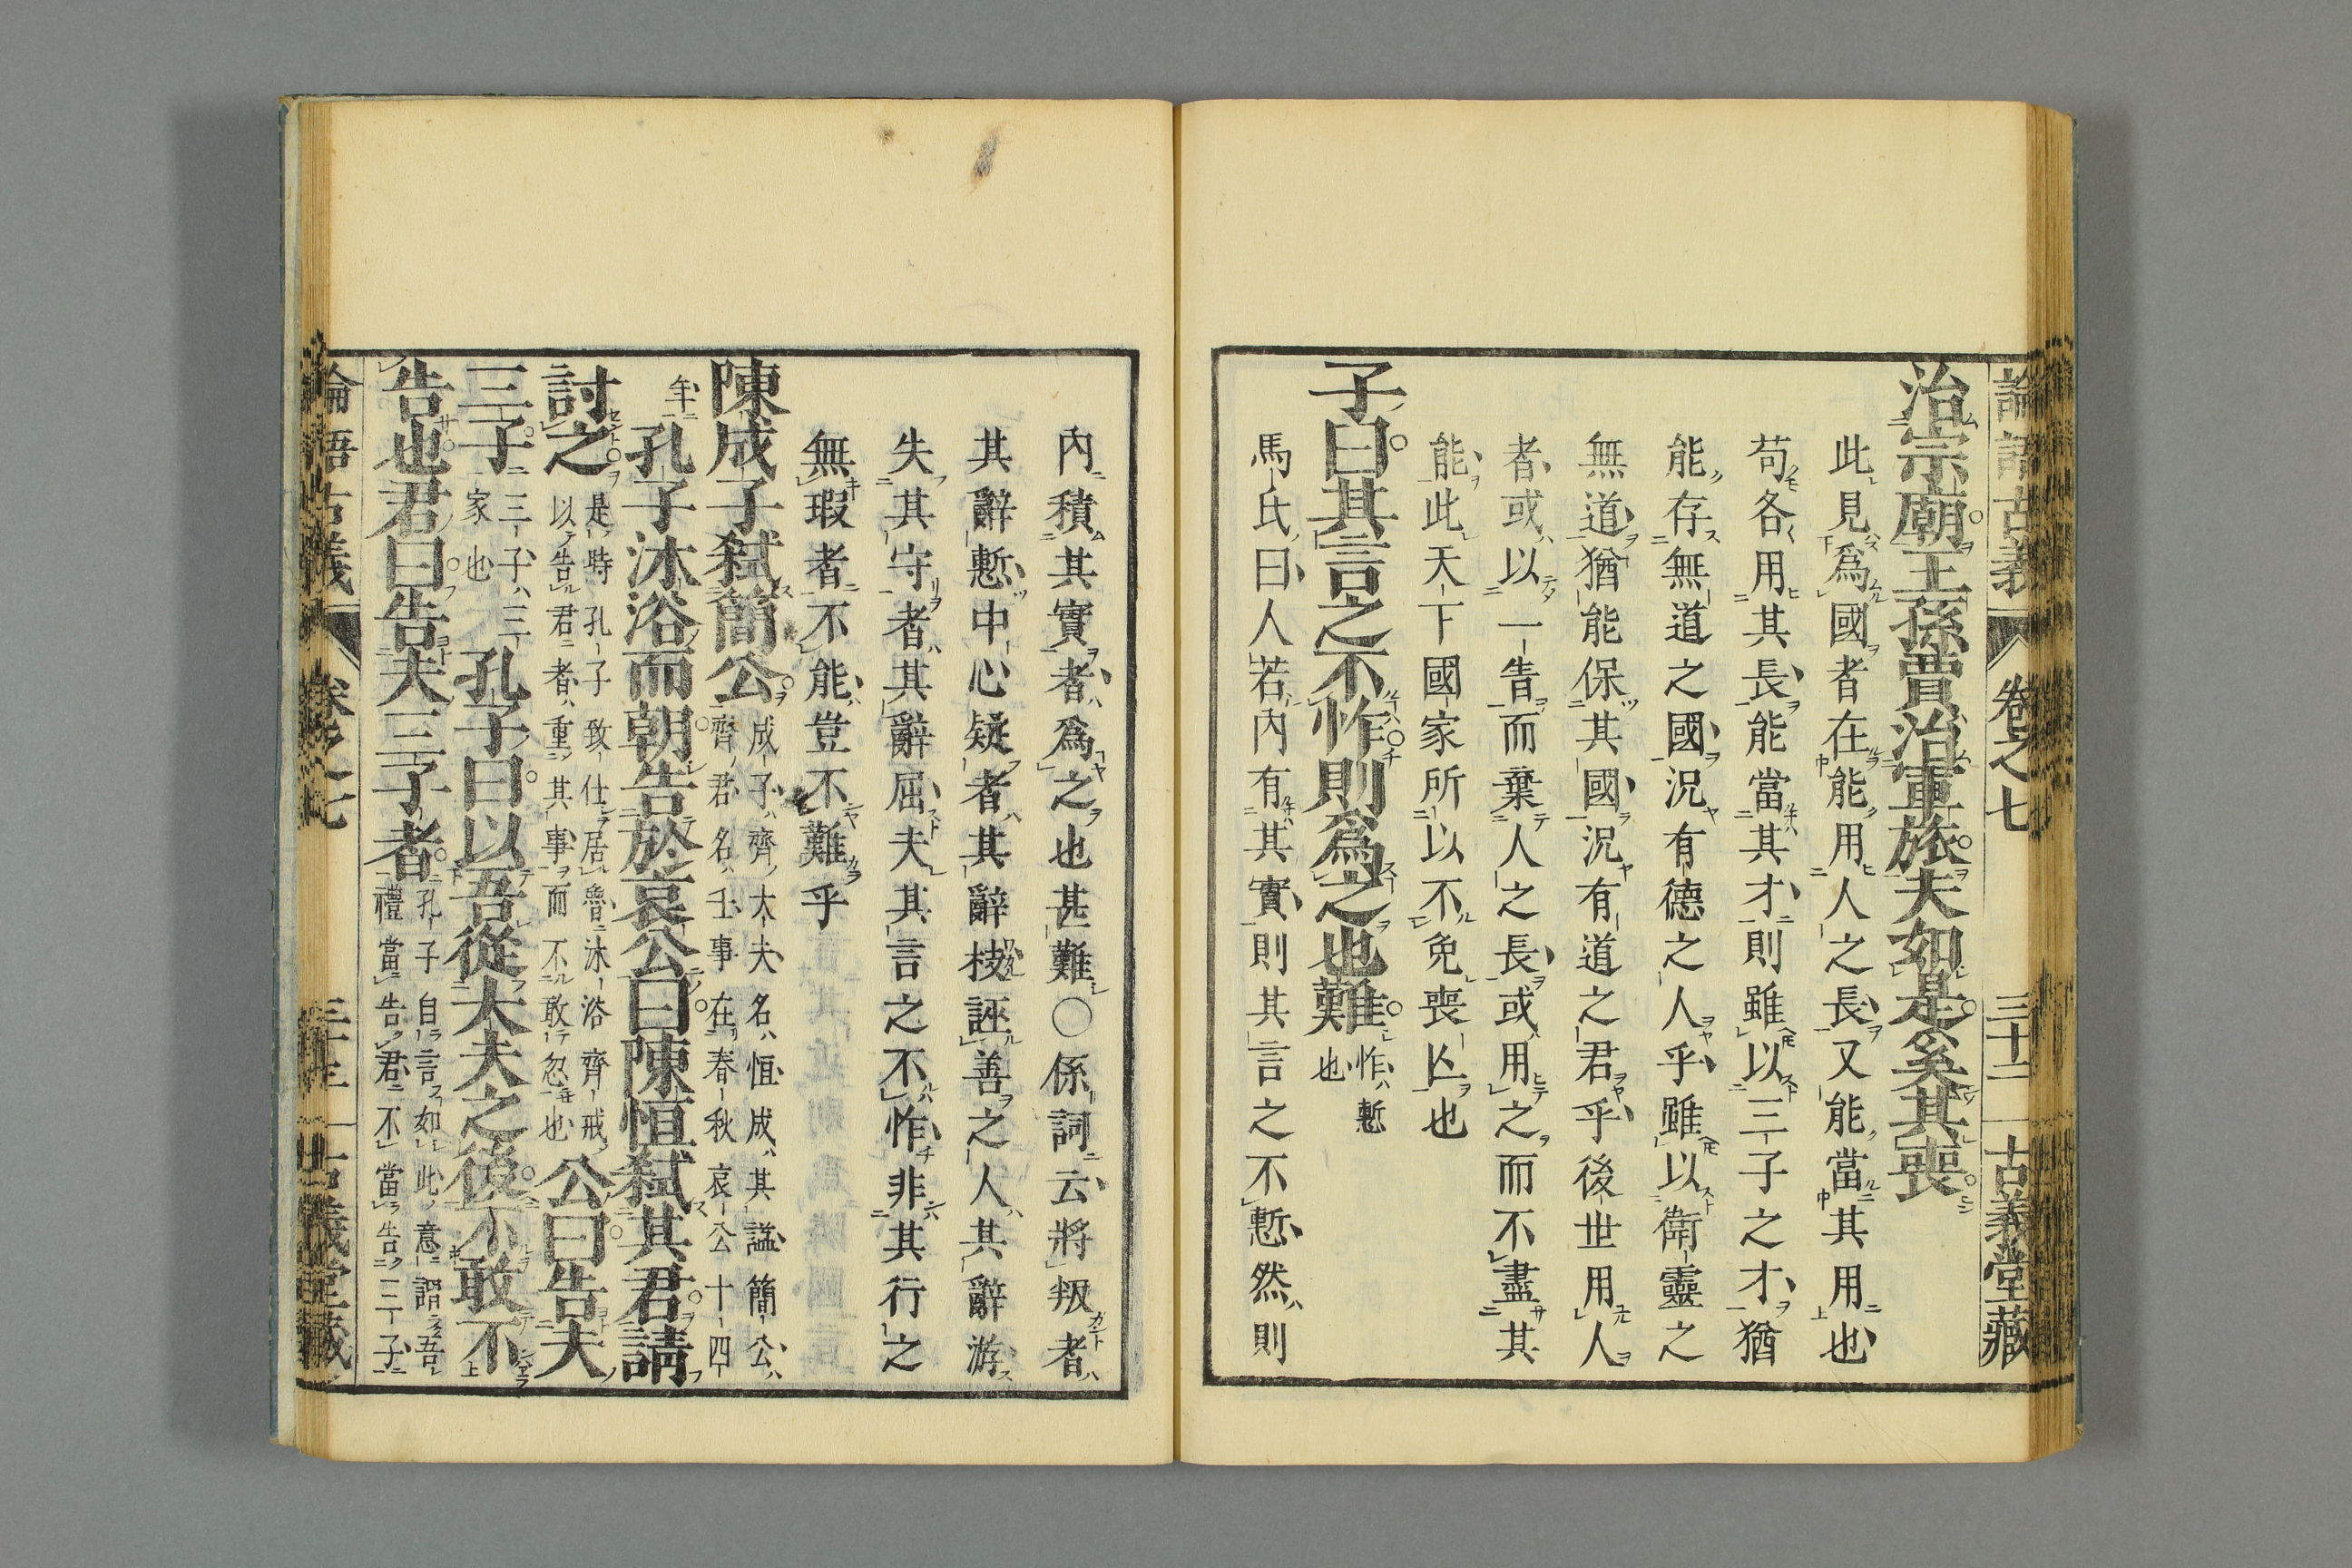 論語古義 卷之七 三十二 古義堂藏
治宗廟王孫賈治軍旅夫如是奚其喪
此見爲國者在能用人之長又能當其用也
苟各用其長能當其才則雖以三子之才猶
能存無道之國況有德之人乎雖以衛靈之
無道猶能保其國況有道之君乎後世用人
者或以一告而棄人之長或用之而不盡其
能此天下國家所以不免喪亾也
子曰其言之不怍則爲之也難 怍慙也
馬氏曰人若內有其實則其言之不慙然則
內積其實者爲之也甚難○係詞云將叛者
其辭慙中心疑者其辭枝誣善之人其辭游
失其守者其辭屈夫其言之不怍非其行之
無瑕者不能豈不難乎
陳成子弑簡公 成子齊大夫名恒成其謚簡公齊君名壬事在春秋哀公十四
年 孔子沐浴而朝告於哀公曰陳恒弑其君請
討之 是時孔子致仕居魯沐浴齊戒以告君者重其事而不敢忽也 公曰告夫
三子 三子三家也 孔子曰以吾從大夫之後不敢不
告也君曰告夫三子者 孔子自言如此意謂吾禮當告君不當告三子
論語古義 卷之七 三十三 古義堂藏